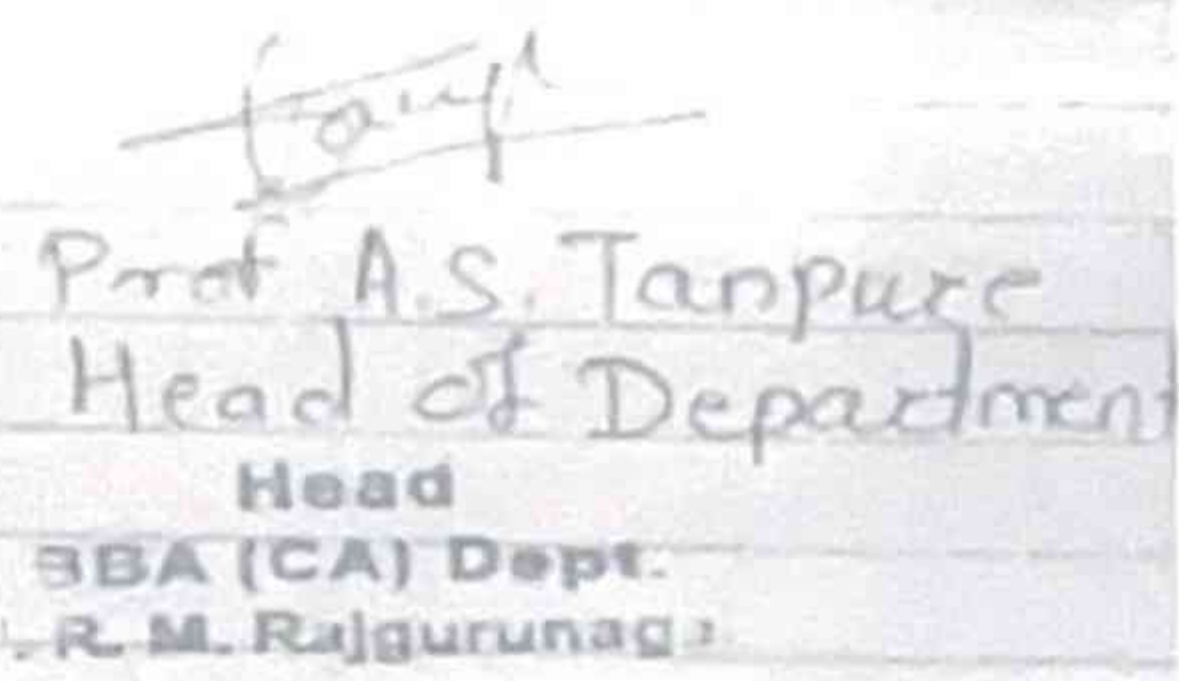 Prof A.S. Tanpure
Head of Department
Head
BBA (CA) Dept.
R. M. Rajgurunag